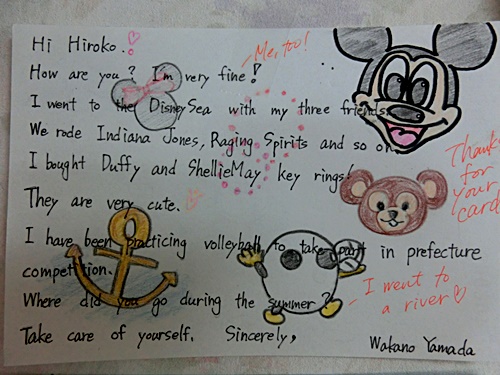 Hi Hiroko.!
Me, too!
How are you? I'm very fine!
I went to the DisneySea with my three friends.
We rode Indiana Jones, Raging Spirits and so on.
I bought Duffy and ShellieMay key rings!
Thank
for
your
card
They are very cute.
I have been practicing volleyball to take part in prefecture
competition.
Where did you go during the summer?
I went to
a river
Take care of yourself. Sincerely,
Wakano Yamada